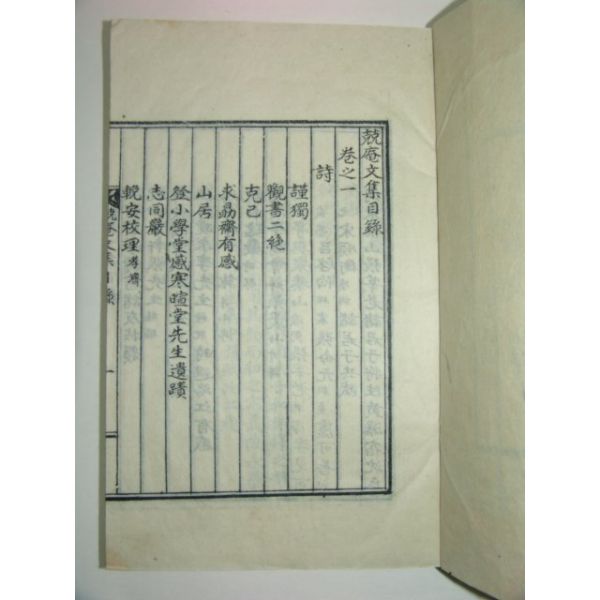 兢庵文集目錄
卷之一
詩
謹獨
觀書二絶
克己
求勗齋有感
山居
登小學堂感寒暄堂先生遺蹟
志同巖
輓安校理
兢庵文集目錄
一